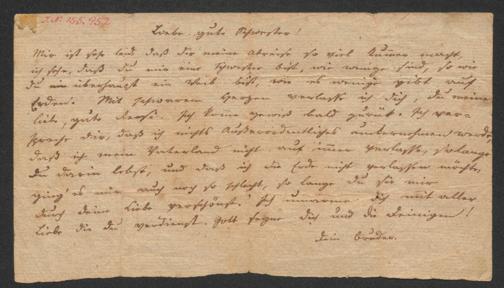 I. N. 155.952
Liebe gute Schwester!
Mir ist sehr leid daß dir meine Abreise so viel Kummer macht,
ich sehe, daß du mir eine Schwester bist, wie wenige sind, so wie
du ein überhaupt ein Weib bist, wie es wenige gibt auf
Erden. Mit schwerem Herzen verlasse ich dich, du meine
liebe, gute Resi! Ich komme gewiß bald zurück. Ich ver-
spreche dir, daß ich nichts Außerordentliches unternehmen werde,
daß ich mein Vaterland nicht auf immer verlasse, solange
du darin lebst, und daß ich die Erde nicht verlassen möchte,
ging' es mir auch noch so schlecht, so lange du sie mir
durch deine Liebe verschönst. Ich umarme dich mit aller
Liebe die du verdienst. Gott segne dich und die Deinigen!
dein Bruder.